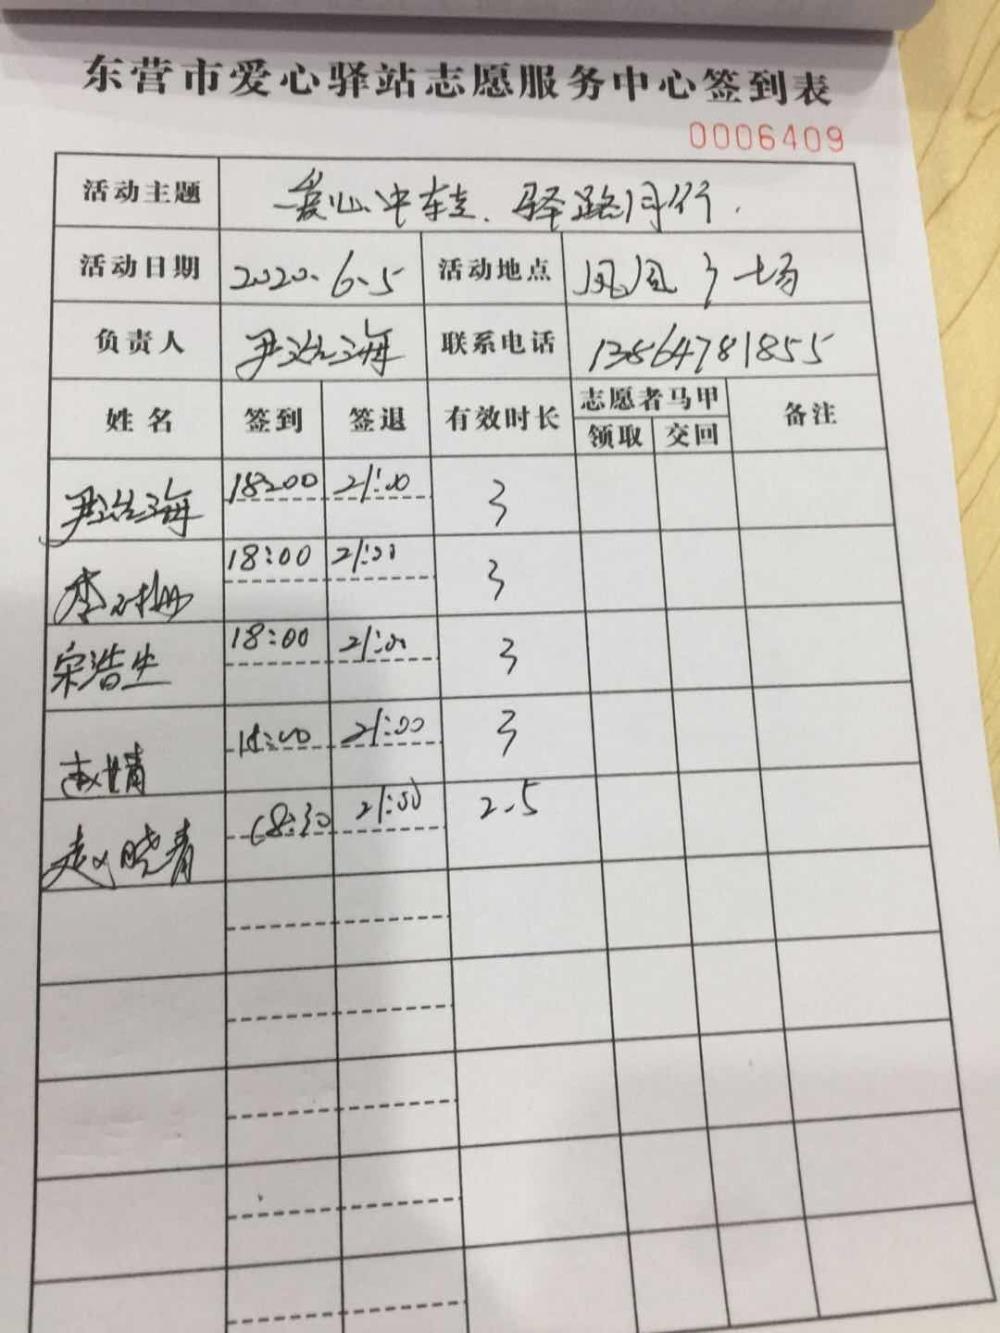 东营市爱心驿站志愿服务中心签到表
0006409
活动主题 爱心中转、驿路同行.
活动日期 2020.6.5 活动地点 凤凰广场
负责人 尹浩海 联系电话 13864781855
姓名 签到 签退 有效时长 志愿者马甲 备注
领取 交回
尹浩海 18:00 21:00 3
18:00 21:00 3
宋浩生 18:00 21:00 3
赵婧 18:00 21:00 3
赵晓青 18:30 21:00 2.5